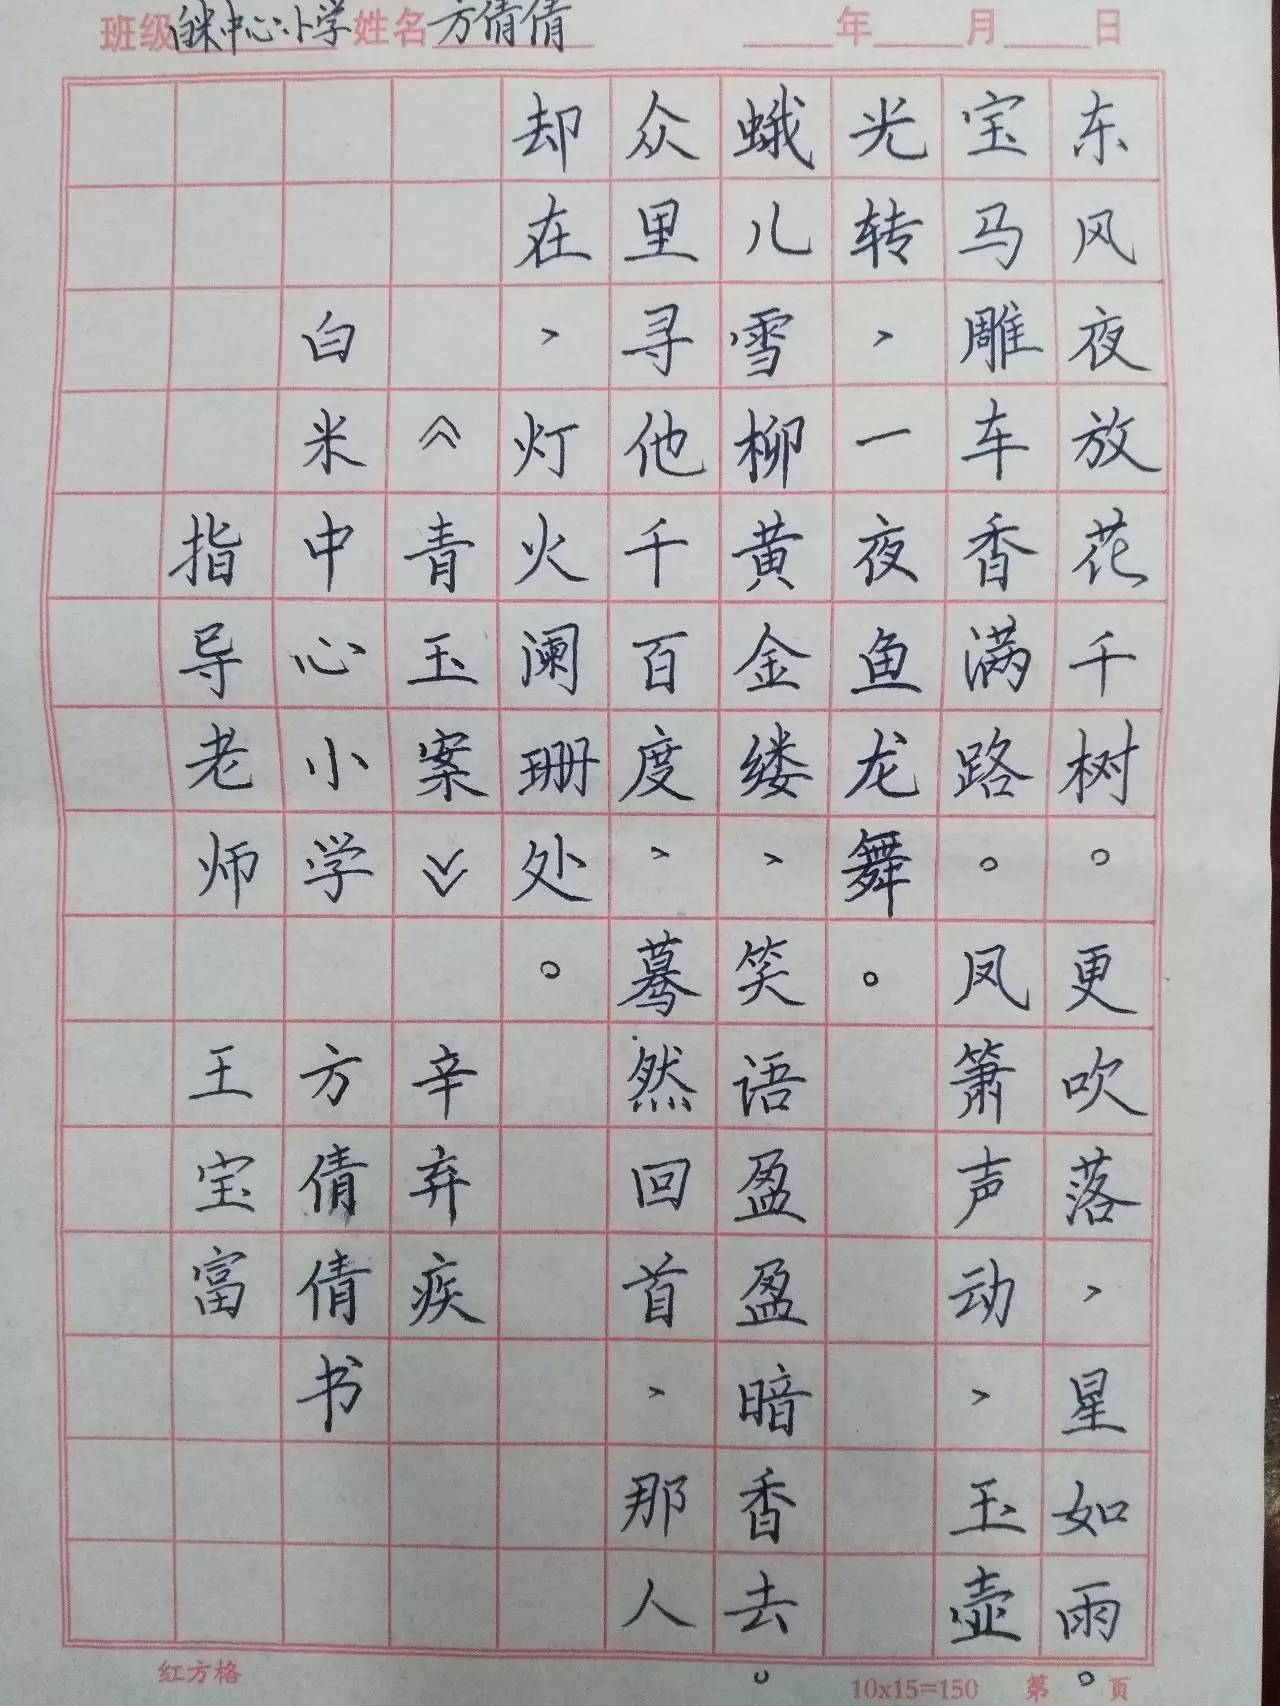 班级白米中心小学姓名方倩倩 年 月 日
东风夜放花千树。更吹落、星如雨。
宝马雕车香满路。凤箫声动、玉壶
光转、一夜鱼龙舞。
蛾儿雪柳黄金缕、笑语盈盈暗香去。
众里寻他千百度、蓦然回首、那人
却在、灯火阑珊处。
《青玉案》辛弃疾
白米中心小学方倩倩书
指导老师王宝富
红方格 10x15=150 第 页